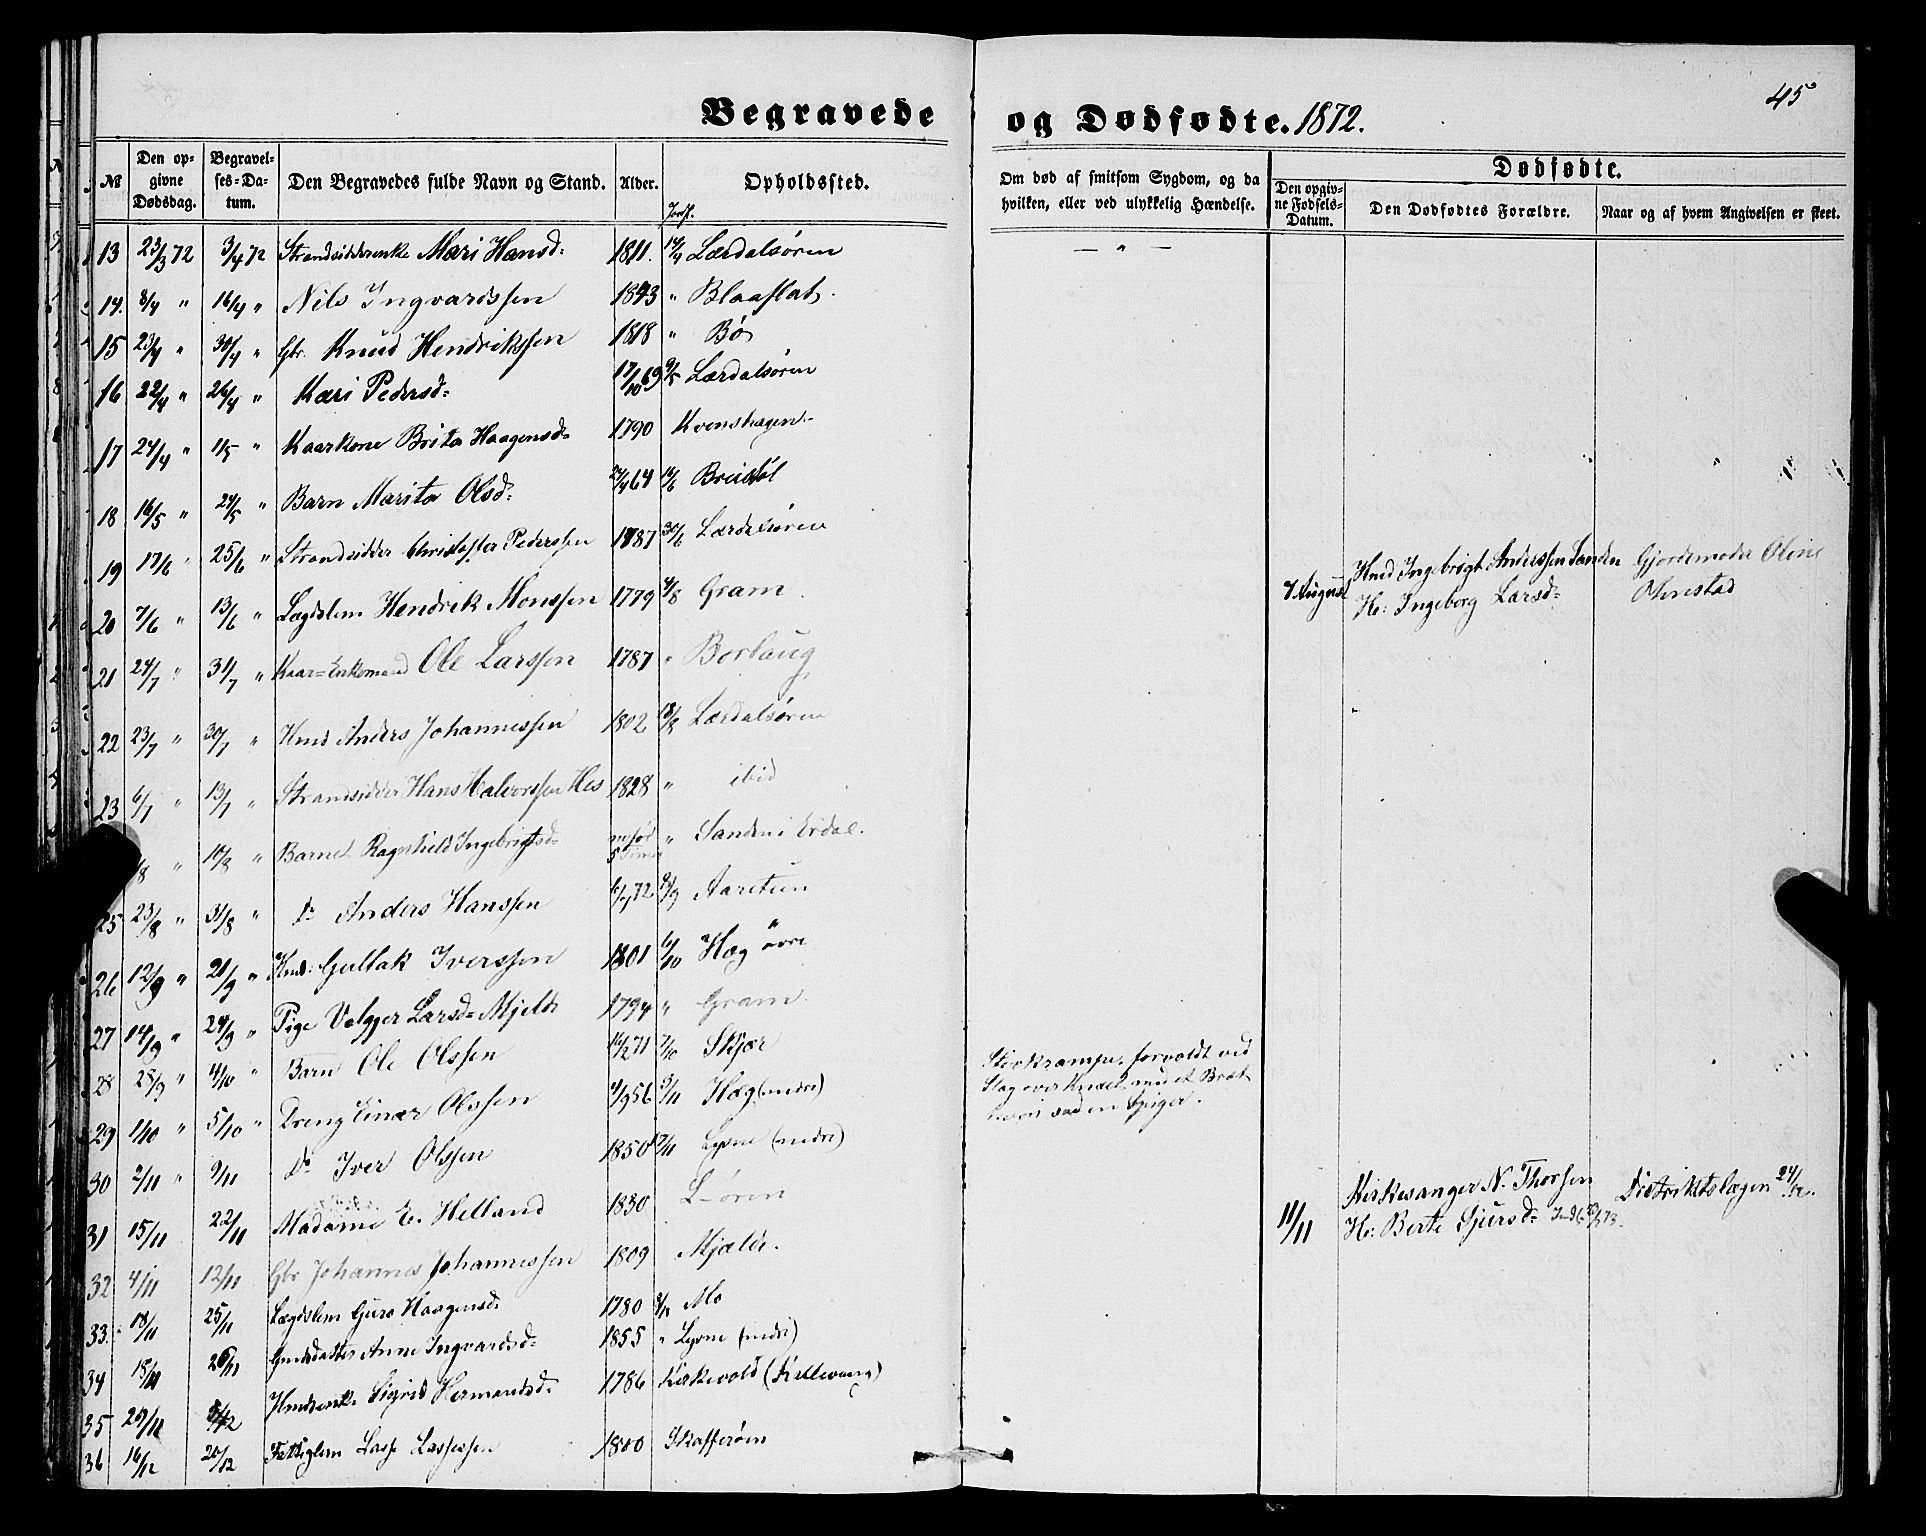 Begravede og Dødfødte. 1872.
45
№ Den opgivne Dødsdag. Begravelses-Datum. Den Begravedes fulde Navn og Stand. Alder. Opholdssted. Om død af smitsom Sygdom, og da hvilken, eller ved ulykkelig Hændelse.
Dødfødte.
Den opgivne Fødsels-Datum. Den Dødfødtes Forældre. Naar og af hvem Angivelsen er skeet.
Jordf.
13 23/3 72 3/4 72 Strandsidderenke Mari Hansd: 1811. 14/4 Lærdalsøren — „ —
14. 8/4 „ 16/4 „ Nils Ingvardssen 1843 „ Blaaflat.
15 23/4 „ 30/4 „ Gbr. Knud Hendrikssen 1818 „ Bø
16 22/4 „ 26/4 „ Kari Pedersd= 17/10 69 9/5 Lærdalsøren
17 24/4 „ 1/5 „ Kaarkone Brita Haagensd= 1790 Kvenshagen
18 16/5 „ 24/5 „ Barn Marita Olsd: 24/4 64 16/6 Breistøl
19 17/6 „ 25/6 „ Strandsidder Christoffer Pederssen 1787 30/6 Lærdalsøren
20 7/6 „ 13/6 „ Lægdslem Hendrik Monssen 1779 4/8 Gram.
7 August Hmd Ingebrigt Anderssen Sanden Gjordemoder Oline
H: Ingeborg Larsd= Ofnestad
21 24/7 „ 31/7 „ Kaar=Enkemand Ole Larssen 1787 „ Borlaug
22 23/7 „ 30/7 „ Hmd Anders Johannessen 1802 18/8 Lærdalsøren
23 6/7 „ 13/7 „ Strandsidder Hans Halvorssen Hes 1828 „ ibid
/8 „ 10/8 „ Barnet Ragnhild Ingebrigtsd= „ Sanden i Erdal.
25 23/8 „ 31/8 „ do Anders Hanssen 6/7 72 9/9 Aaretun
26 12/9 „ 21/9 „ Hmd: Gullak Iverssen 1801 6/10 Hæg øvre
27 14/9 „ 24/9 „ Pige Valgjer Larsd= Mjelde 1794 „ Gram.
28 28/9 „ 4/10 „ Barn Ole Olssen 16/2 71 7/10 Skjær
29 1/10 „ 5/10 „ Dreng Einar Olssen 4/9 56 3/11 Hæg (nedre)
Stivkrampe, forvoldt ved
Slag over Knæet med et Bræt
hvori sad en Spiger.
30 2/11 „ 9/11 do Iver Olssen 1850 17/11 Lysne (nedre)
31 15/11 22/11 Madame E. Helland 1830 L-øren
11/11 Kirkesanger N. Thorsen Distriktslægen 24/12.
H: Berte Sjursd=
32 4/11 12/11 Gbr Johannes Johannessen 1809 Mjælde.
33. 18/11 25/11 Lægdslem Guro Haagensd: 1780 8/12 Mo
34 18/11 26/11 Gmdsdatter Anne Ingvardsd= 1855 „ Lysne (nedre)
35 29/11 5/12 Hmdsenke Sigrid Hermandsd: 1786 Kirkevold
36 16/12 20/12 Fattiglem Lasse Lassessen 1800